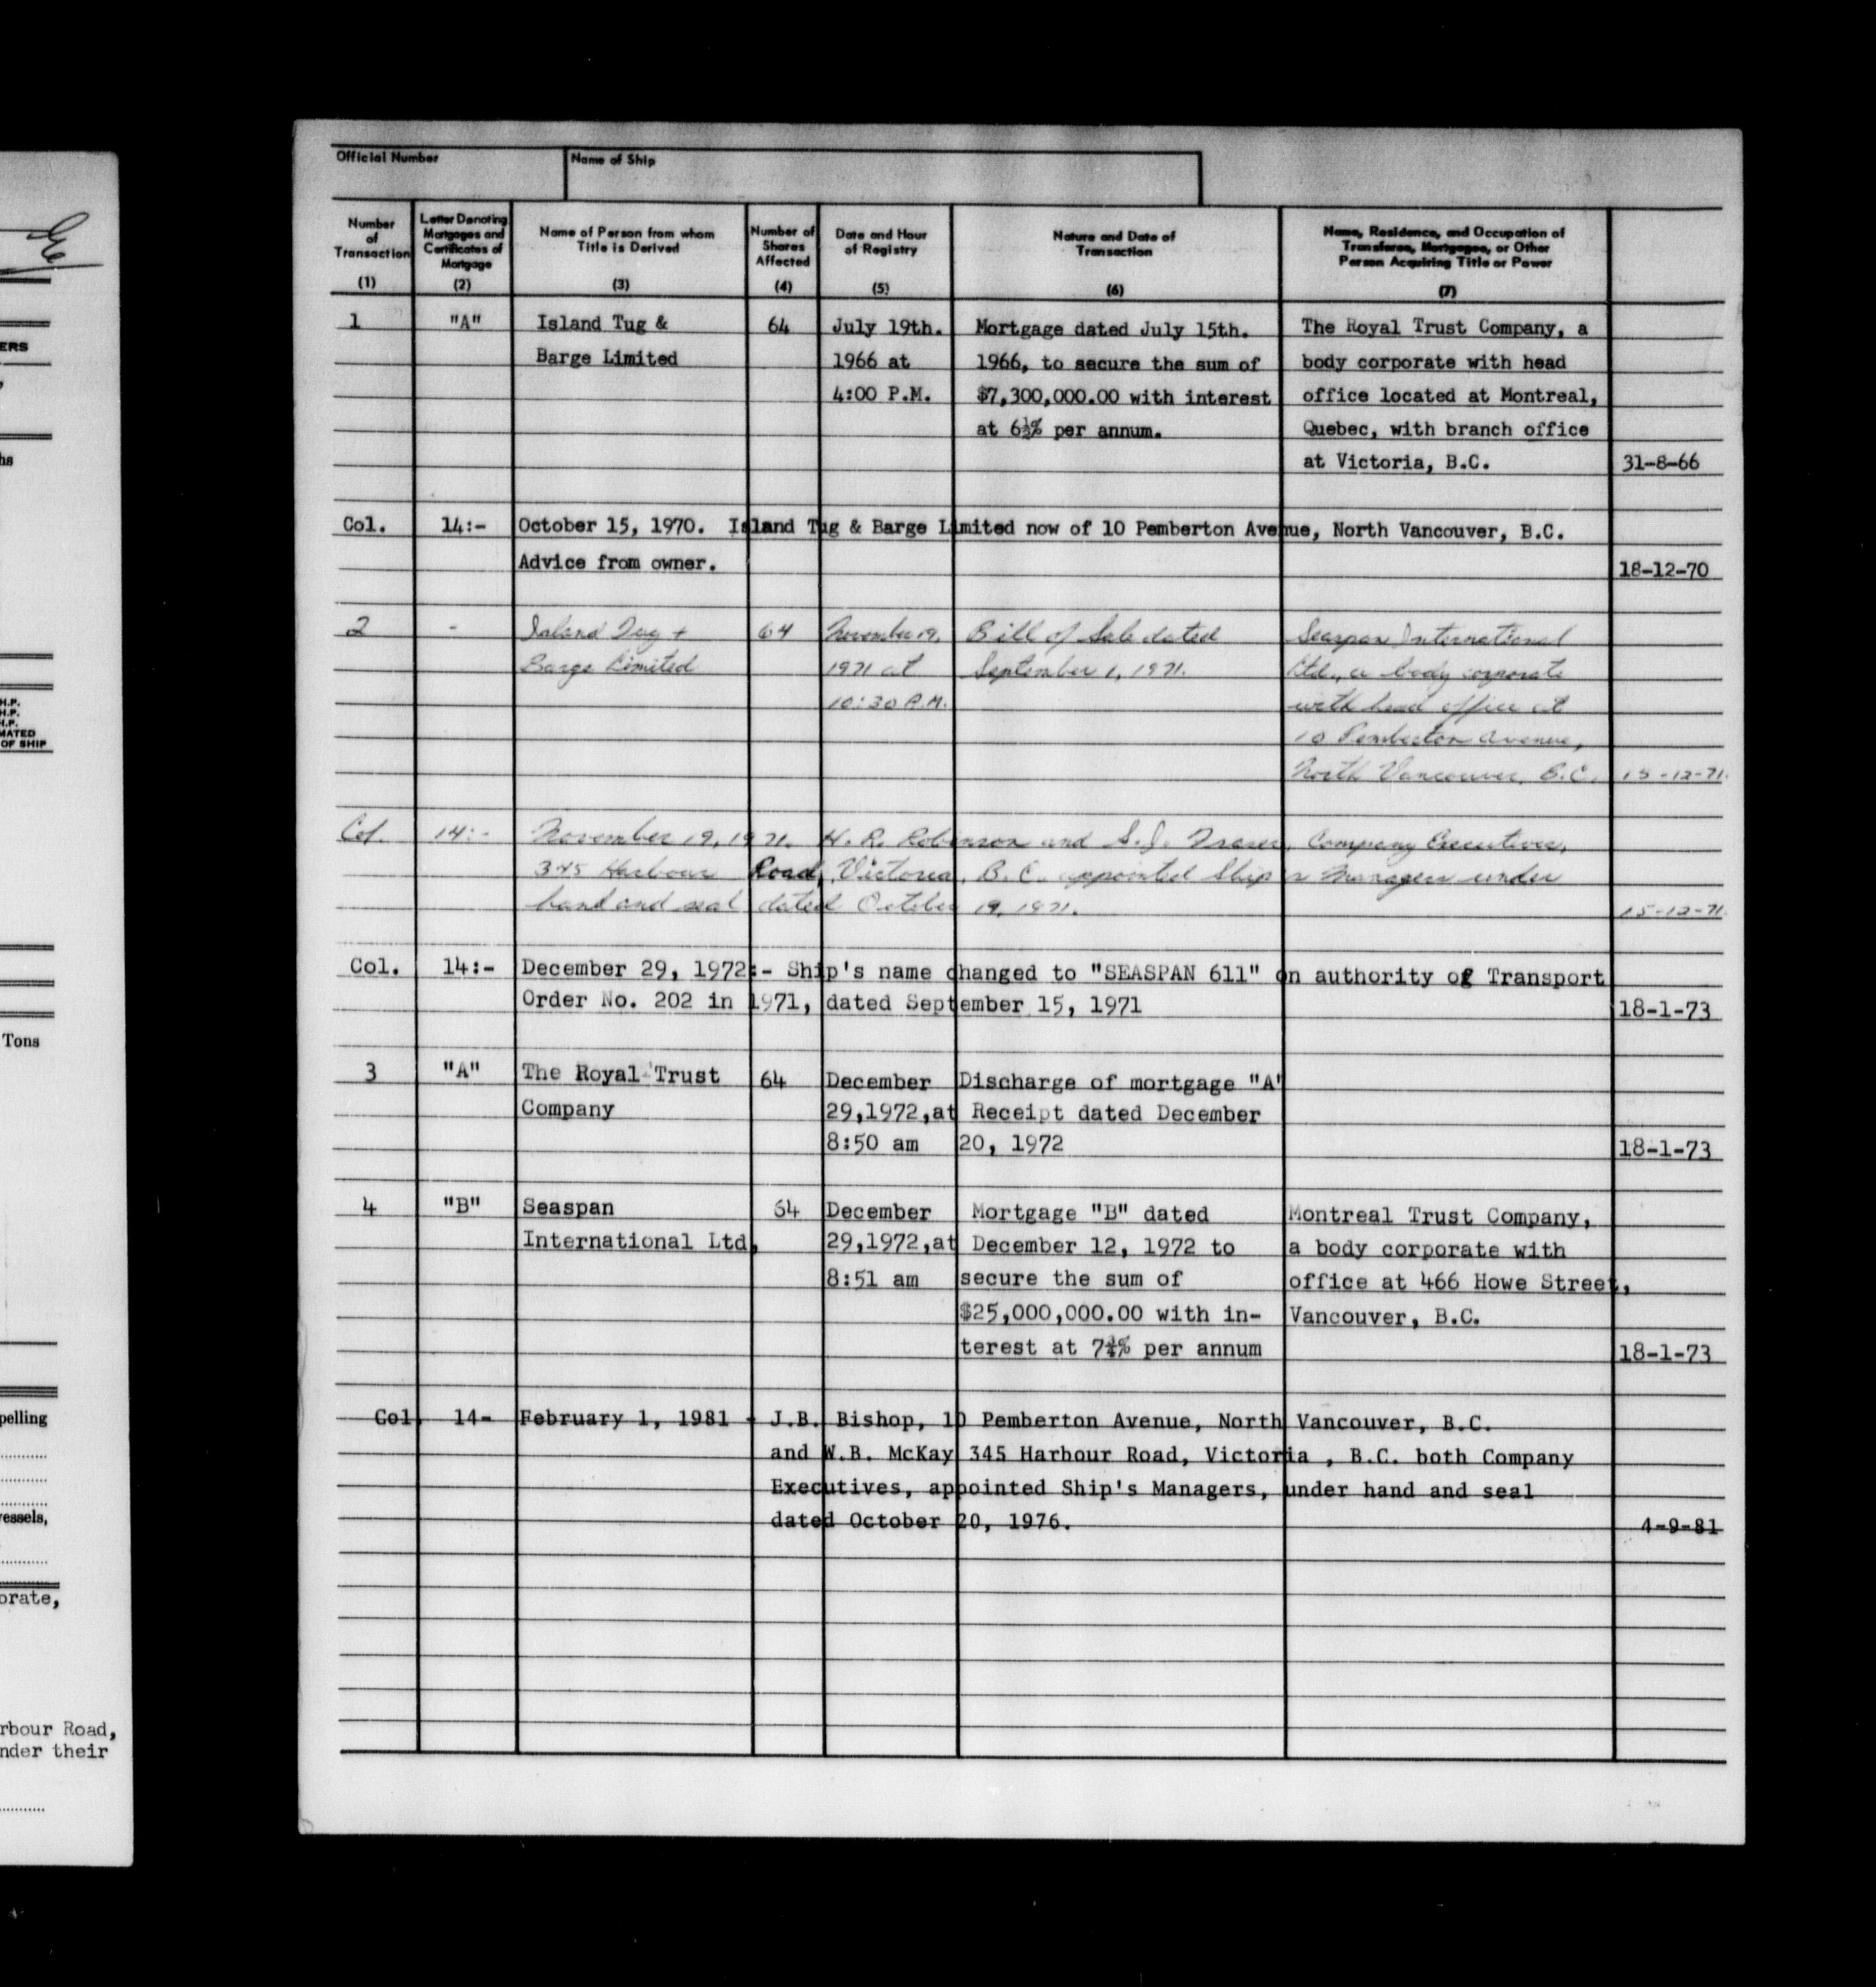 E
ERS
hs
H.P.
H.P.
H.P.
MATED
OF SHIP
Tons
pelling
essels,
orate,
rbour Road,
nder their
Official Number Name of Ship
Number of Transaction (1) Letter Denoting Mortgages and Certificates of Mortgage (2) Name of Person from whom Title is Derived (3) Number of Shares Affected (4) Date and Hour of Registry (5) Nature and Date of Transaction (6) Name, Residence, and Occupation of Transferee, Mortgagee, or Other Person Acquiring Title or Power (7)
1 "A" Island Tug & 64 July 19th. Mortgage dated July 15th. The Royal Trust Company, a
Barge Limited 1966 at 1966, to secure the sum of body corporate with head
4:00 P.M. $7,300,000.00 with interest office located at Montreal,
at 6½% per annum. Quebec, with branch office
at Victoria, B.C. 31-8-66
Col. 14:- October 15, 1970. Island Tug & Barge Limited now of 10 Pemberton Avenue, North Vancouver, B.C.
Advice from owner. 18-12-70
2 - Island Tug + 64 November 19, Bill of Sale dated Seaspan International
Barge Limited 1971 at September 1, 1971. Ltd., a body corporate
10:30 A.M. with head office at
10 Pemberton Avenue,
North Vancouver, B.C. 15-12-71.
Col. 14:- November 19, 1971. H. R. Robinson and S.J. Fraser, Company Executives,
345 Harbour Road, Victoria, B.C. appointed Ship's Managers under
hand and seal dated October 19, 1971. 15-12-71.
Col. 14:- December 29, 1972:- Ship's name changed to "SEASPAN 611" on authority of Transport
Order No. 202 in 1971, dated September 15, 1971 18-1-73
3 "A" The Royal Trust 64 December Discharge of mortgage "A"
Company 29,1972,at Receipt dated December
8:50 am 20, 1972 18-1-73
4 "B" Seaspan 64 December Mortgage "B" dated Montreal Trust Company,
International Ltd. 29,1972,at December 12, 1972 to a body corporate with
8:51 am secure the sum of office at 466 Howe Street,
$25,000,000.00 with in- Vancouver, B.C.
terest at 7¾% per annum 18-1-73
Col. 14- February 1, 1981 - J.B. Bishop, 10 Pemberton Avenue, North Vancouver, B.C.
and W.B. McKay 345 Harbour Road, Victoria , B.C. both Company
Executives, appointed Ship's Managers, under hand and seal
dated October 20, 1976. 4-9-81